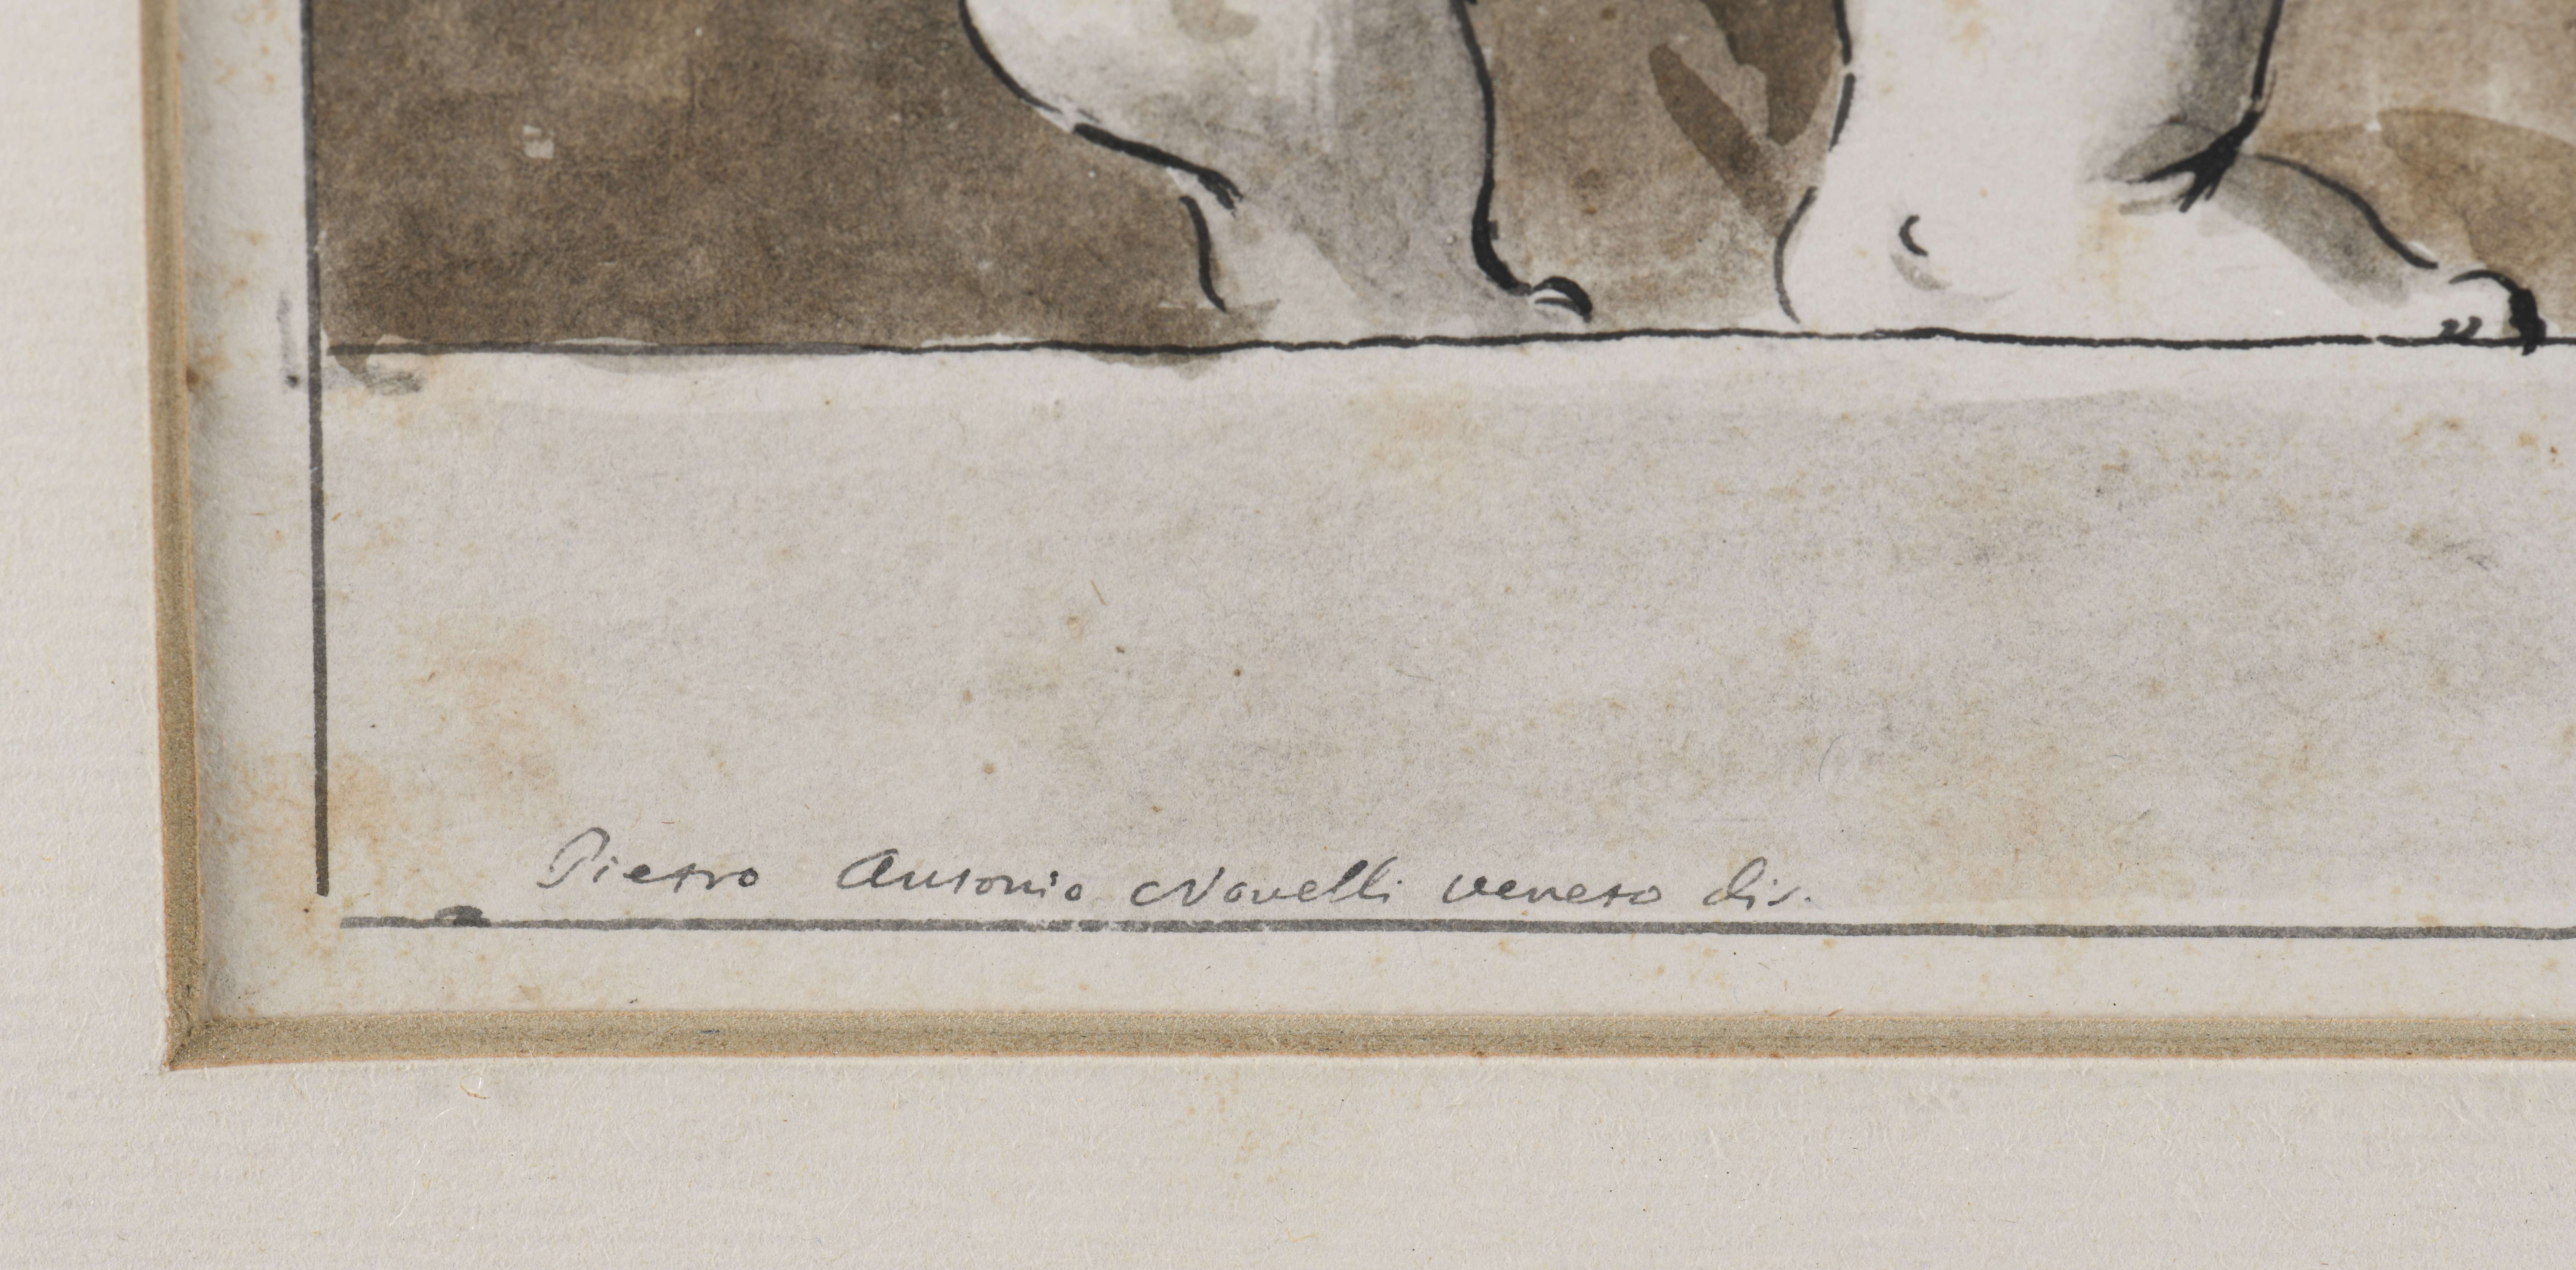 Pietro Antonio Novelli veneto dis.